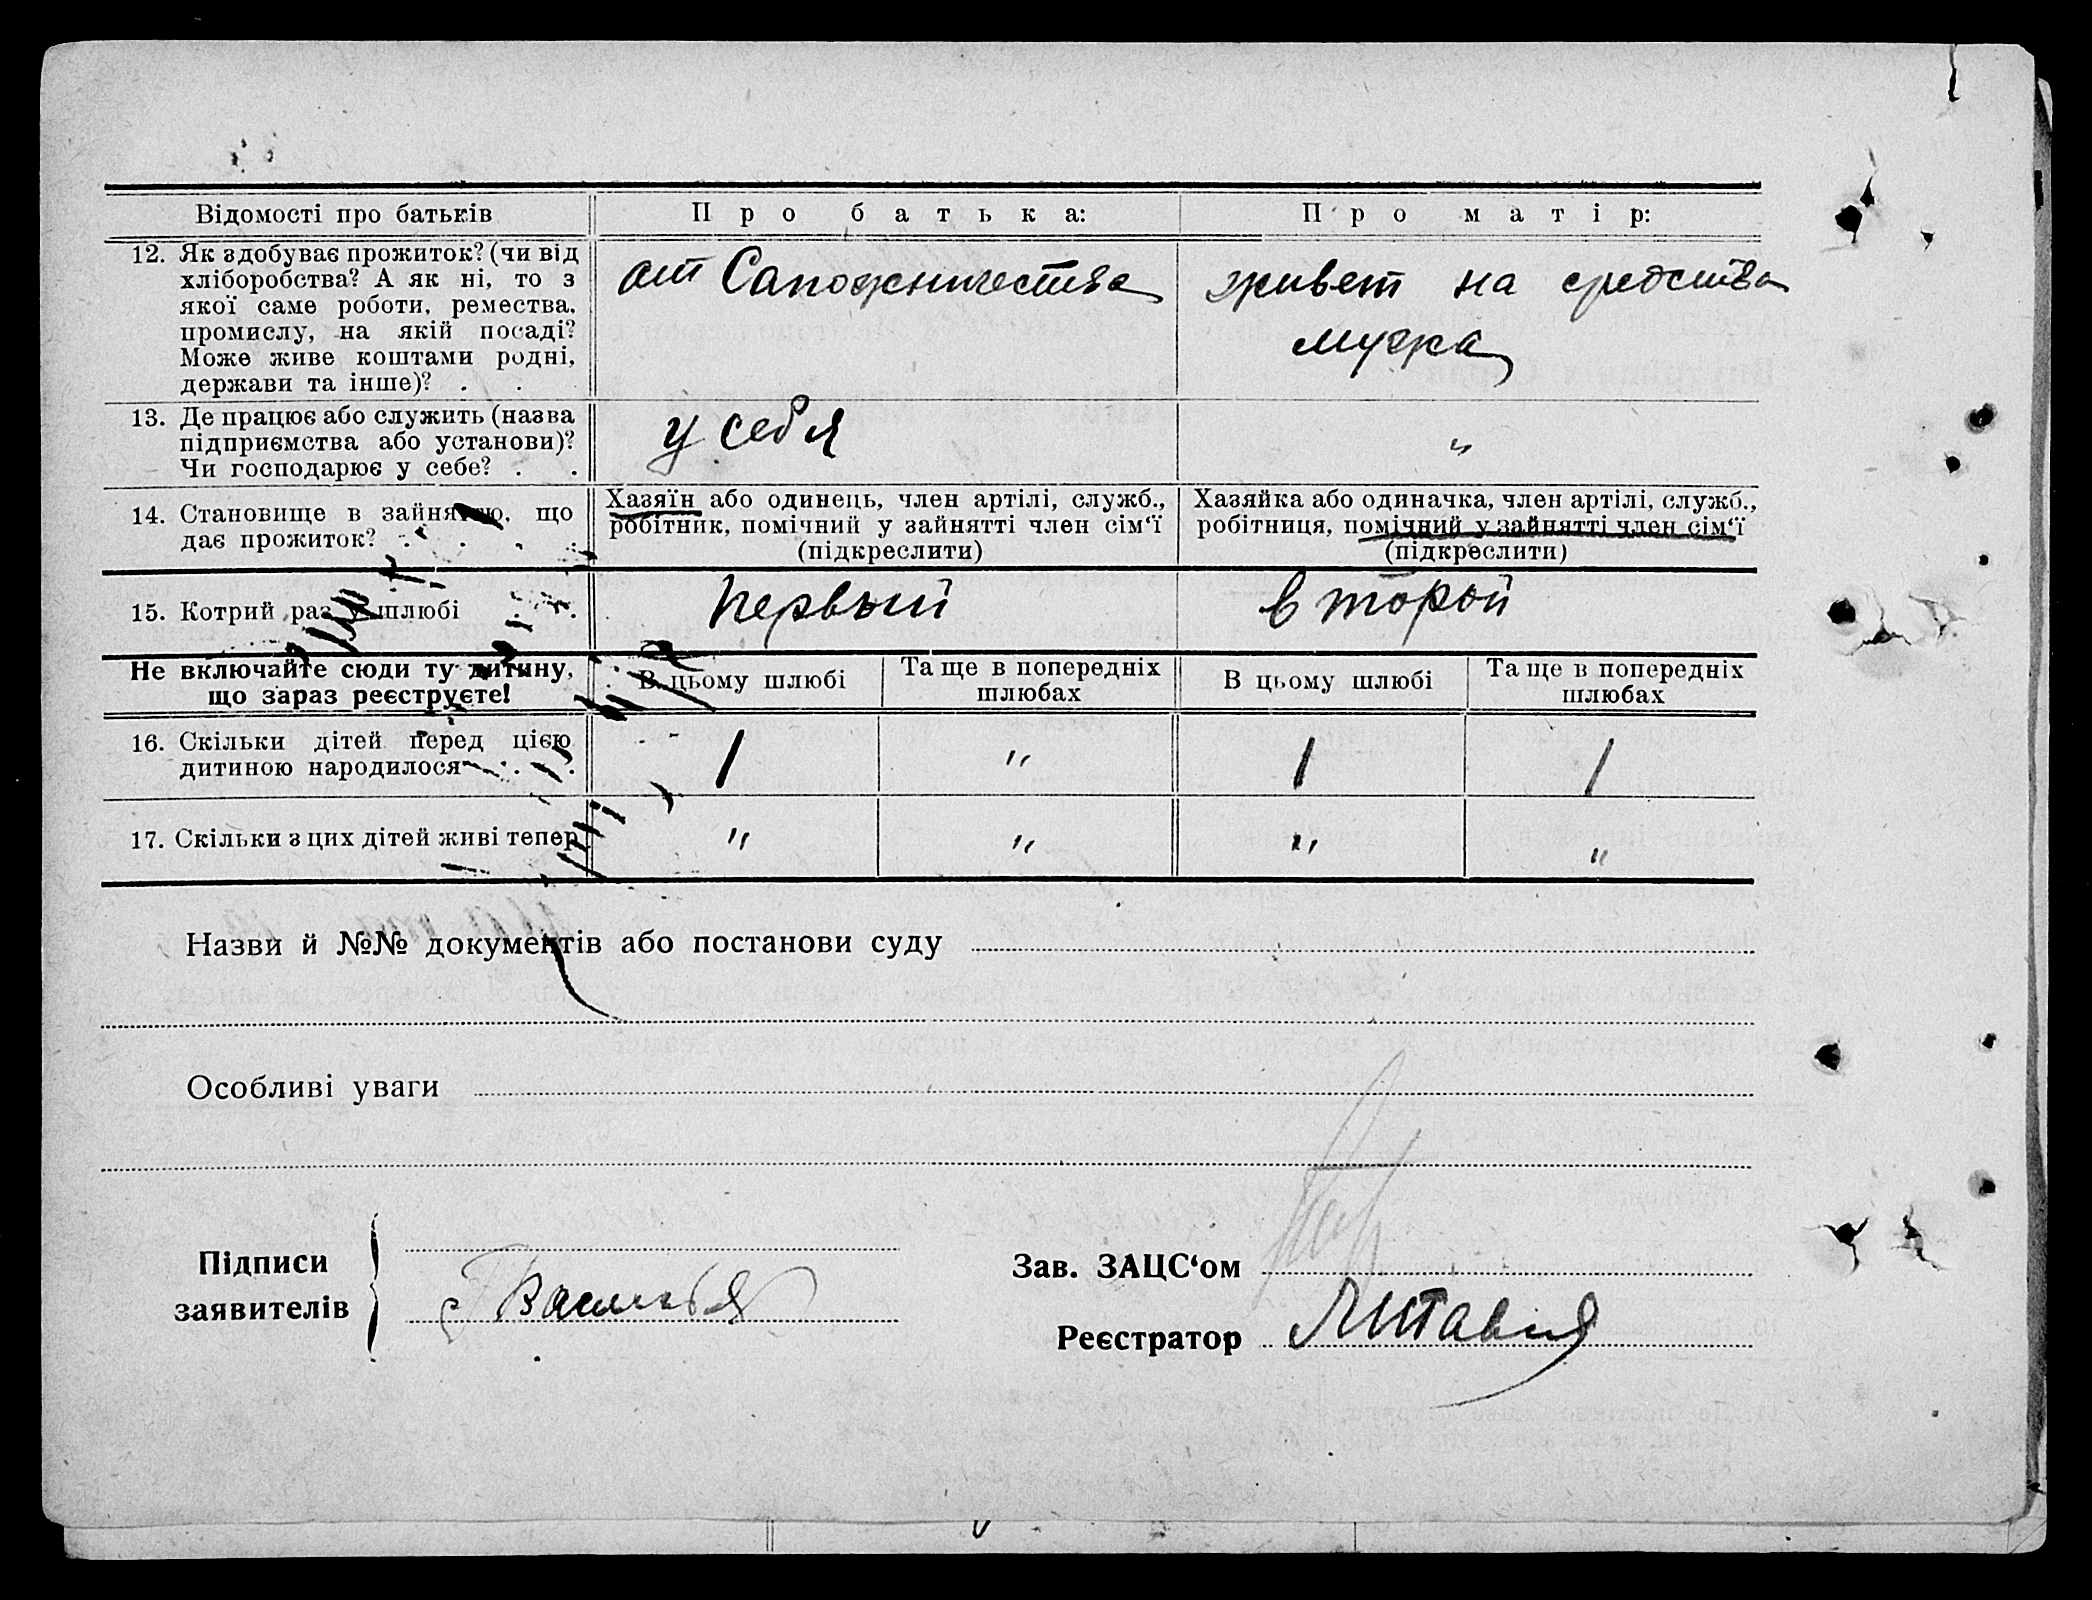 Відомості про батьків
Про батька:
Про матір:
12. Як здобуває прожиток? (чи від
хліборобства? А як ні, то з
якої саме роботи, ремества,
промислу, на якій посаді?
Може живе коштами родні,
держави та інше)? . .
от Сапожничества
живет на средства
мужа
13. Де працює або служить (назва
підприємства або установи)?
Чи господарює у себе? . .
у себя
"
14. Становище в зайняттю, що
дає прожиток? . . . .
Хазяїн або одинець, член артілі, служб.,
робітник, помічний у зайнятті член сім'ї
(підкреслити)
Хазяйка або одиначка, член артілі, служб.,
робітниця, помічний у зайнятті член сім'ї
(підкреслити)
15. Котрий раз у шлюбі . .
первый
второй
Не включайте сюди ту дитину,
що зараз реєструєте!
В цьому шлюбі
Та ще в попередніх
шлюбах
В цьому шлюбі
Та ще в попередніх
шлюбах
16. Скільки дітей перед цією
дитиною народилося . . .
1
"
1
1
17. Скільки з цих дітей живі тепер
"
"
"
"
Назви й №№ документів або постанови суду
Особливі уваги
Підписи
заявителів
Зав. ЗАЦС'ом
Реєстратор